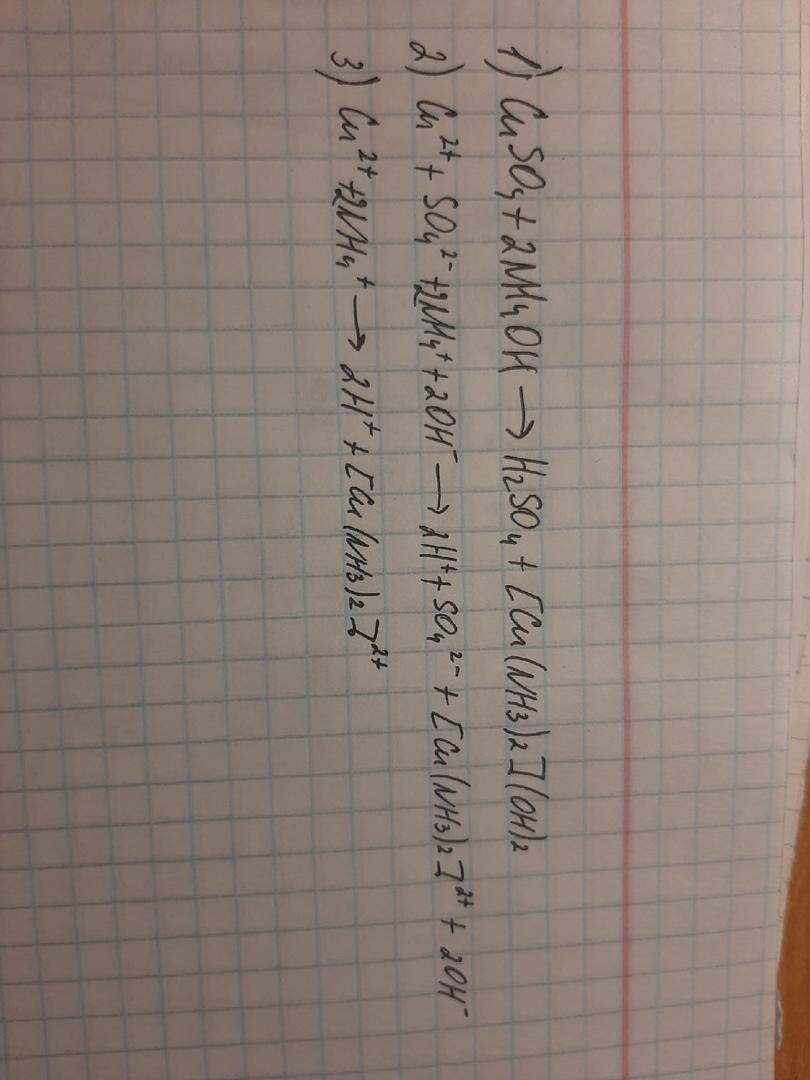 1) CuSO₄ + 2NH₄OH → H₂SO₄ + [Cu(NH₃)₂](OH)₂
2) Cu²⁺ + SO₄²⁻ + 2NH₄⁺ + 2OH⁻ → 2H⁺ + SO₄²⁻ + [Cu(NH₃)₂]²⁺ + 2OH⁻
3) Cu²⁺ + 2NH₄⁺ → 2H⁺ + [Cu(NH₃)₂]²⁺